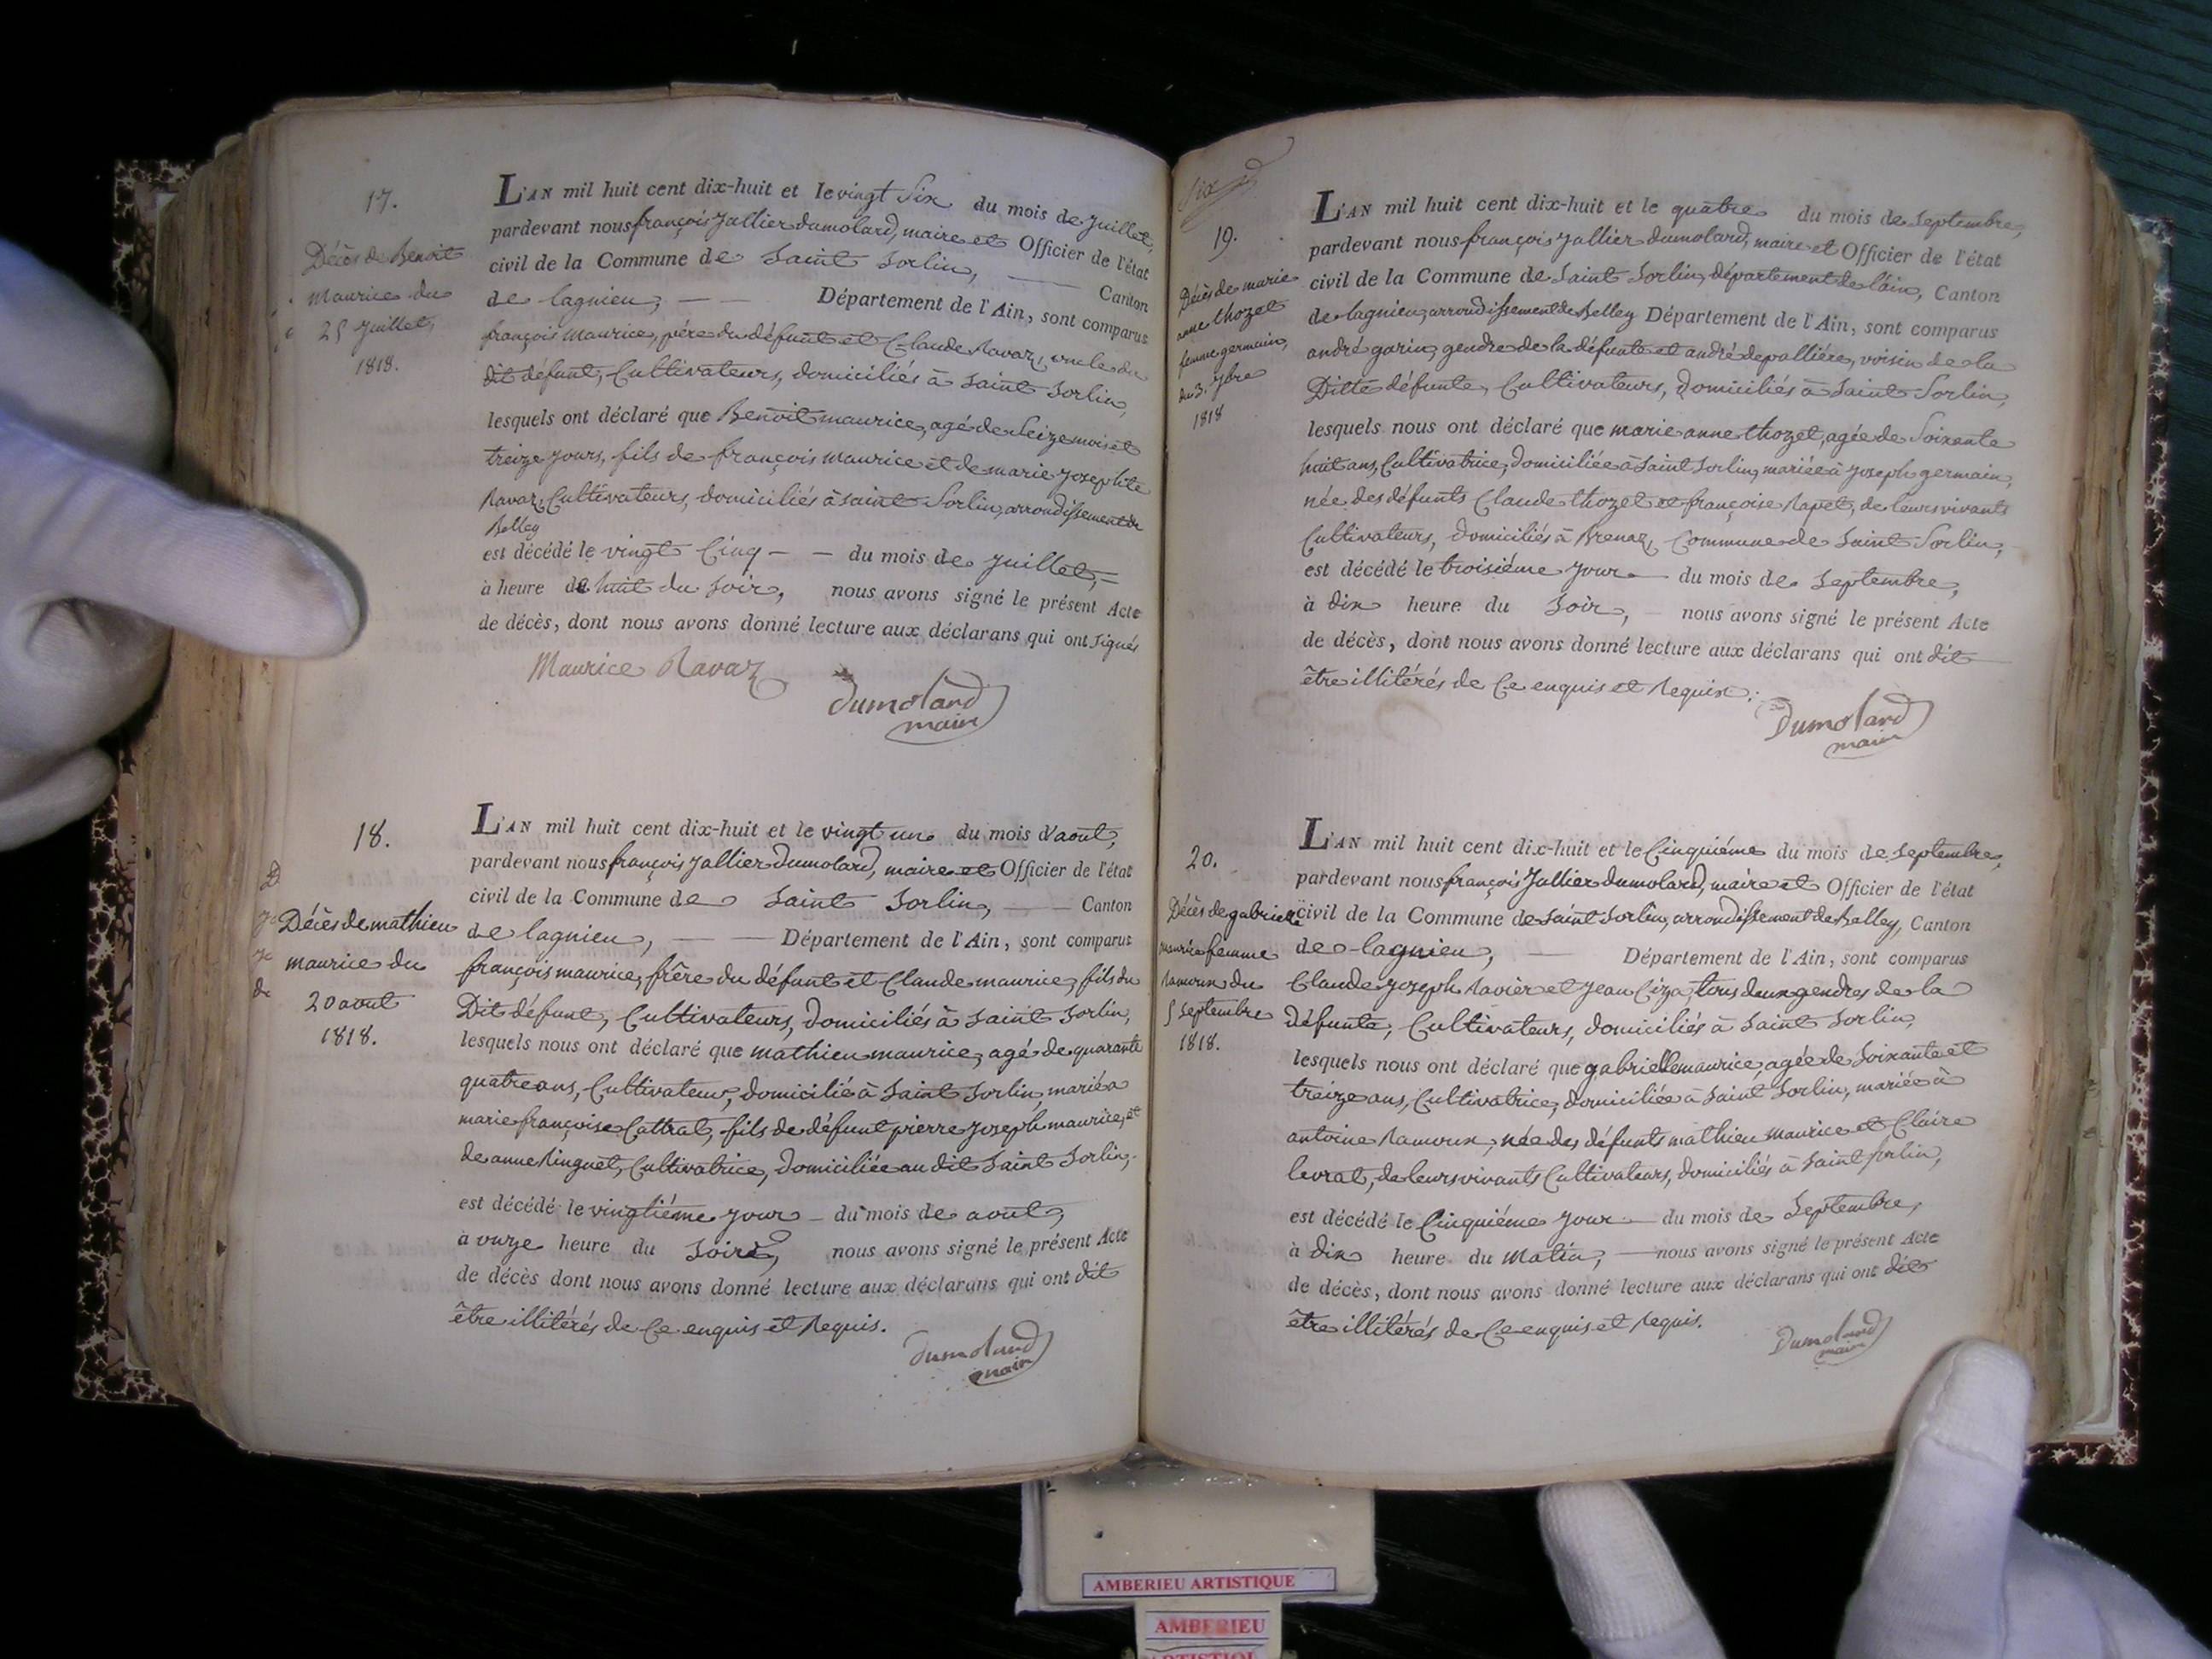 17.
Décès de Benoit
maurice du
25 Juillet,
1818.
L'AN mil huit cent dix-huit et le vingt Six du mois de Juillet,
pardevant nous françois Jallier dumolard, maire et Officier de l'état
civil de la Commune de Saint Sorlin, Canton
de lagnieu, Département de l'Ain, sont comparus
françois maurice, pére du défunt et Claude Ravaz, oncle du
dit défunt, Cultivateurs, domiciliés à Saint Sorlin,
lesquels ont déclaré que Benoit maurice, agé de Seize mois et
treize jours, fils de françois maurice et de marie Josephte
Ravaz, Cultivateurs, domiciliés à saint Sorlin, arrondissement de
Belley
est décédé le vingt Cinq — — du mois de Juillet, —
à heure de huit du Soir, nous avons signé le présent Acte
de décès, dont nous avons donné lecture aux déclarans qui ont signés
Maurice Ravaz
Dumolard
maire
18.
Décès de mathieu
maurice du
20 aout
1818.
L'AN mil huit cent dix-huit et le vingt un du mois d'aout,
pardevant nous françois Jallier Dumolard, maire et Officier de l'état
civil de la Commune de Saint Sorlin, — Canton
de lagnieu, — — Département de l'Ain, sont comparus
françois maurice, frêre du défunt et Claude maurice, fils du
Dit défunt, Cultivateurs, domiciliés à Saint Sorlin,
lesquels nous ont déclaré que mathieu maurice, agé de quarante
quatre ans, Cultivateur, domicilié à Saint Sorlin, marié a
marie françoise Cattrat, fils de défunt pierre Joseph maurice, et
de anne Ringuet, Cultivatrice, domiciliée au dit Saint Sorlin,
est décédé le vingtiéme jour — du mois de aout,
à onze heure du Soire, nous avons signé le présent Acte
de décès dont nous avons donné lecture aux déclarans qui ont dit
être illitérés de Ce enquis et Requis.
Dumolard
maire
Six
19.
Décès de marie
anne thozet
femme germain,
du 3. 7bre
1818
L'AN mil huit cent dix-huit et le quatre du mois de Septembre,
pardevant nous françois Jallier dumolard, maire et Officier de l'état
civil de la Commune de Saint Sorlin, département de l'ain, Canton
de lagnieu, arrondissement de Belley Département de l'Ain, sont comparus
andré garin, gendre de la défunte et andré depalliére, voisin de la
Ditte défunte, Cultivateurs, domiciliés à Saint Sorlin,
lesquels nous ont déclaré que marie anne thozet, agée de Soixante
huit ans, Cultivatrice, domiciliée à Saint Sorlin, mariée à Joseph germain,
née des défunts Claude thozet et françoise Rapet, de leurs vivants
Cultivateurs, domiciliés à Brenaz, Commune de Saint Sorlin,
est décédé le troisiéme jour — du mois de Septembre,
à dix heure du Soir, — nous avons signé le présent Acte
de décès, dont nous avons donné lecture aux déclarans qui ont dit
être illitérés de Ce enquis et Requis.
Dumolard
maire
20.
Décès de gabrielle
maurice femme
Ramoux du
5 Septembre
1818.
L'AN mil huit cent dix-huit et le Cinquiéme du mois de Septembre,
pardevant nous françois Jallier Dumolard, maire et Officier de l'état
civil de la Commune de Saint Sorlin, arrondissement de Belley, Canton
de lagnieu, — Département de l'Ain, sont comparus
Claude Joseph Ravier et Jean Ciza, tous deux gendres de la
défunte, Cultivateurs, domiciliés à Saint Sorlin,
lesquels nous ont déclaré que gabrielle maurice, agée de Soixante et
treize ans, Cultivatrice, domiciliée à Saint Sorlin, mariée à
antoine Ramoux, née des défunts mathieu maurice et Claire
levrat, de leurs vivants Cultivateurs, domiciliés à Saint Sorlin,
est décédé le Cinquiéme jour — du mois de Septembre,
à dix heure du Matin, — nous avons signé le présent Acte
de décès, dont nous avons donné lecture aux déclarans qui ont dit
être illitérés de Ce enquis et Requis.
Dumolard
maire
AMBERIEU ARTISTIQUE
AMBERIEU
ARTISTIQUE